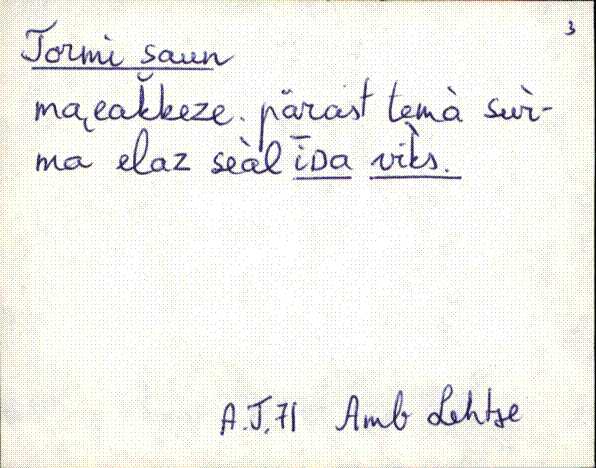 3
Tormi saun
ma̮eak̆keze. pärast temà suì-
ma elaz seàl īDa vìks.
A.J.71 Amb Lehtse